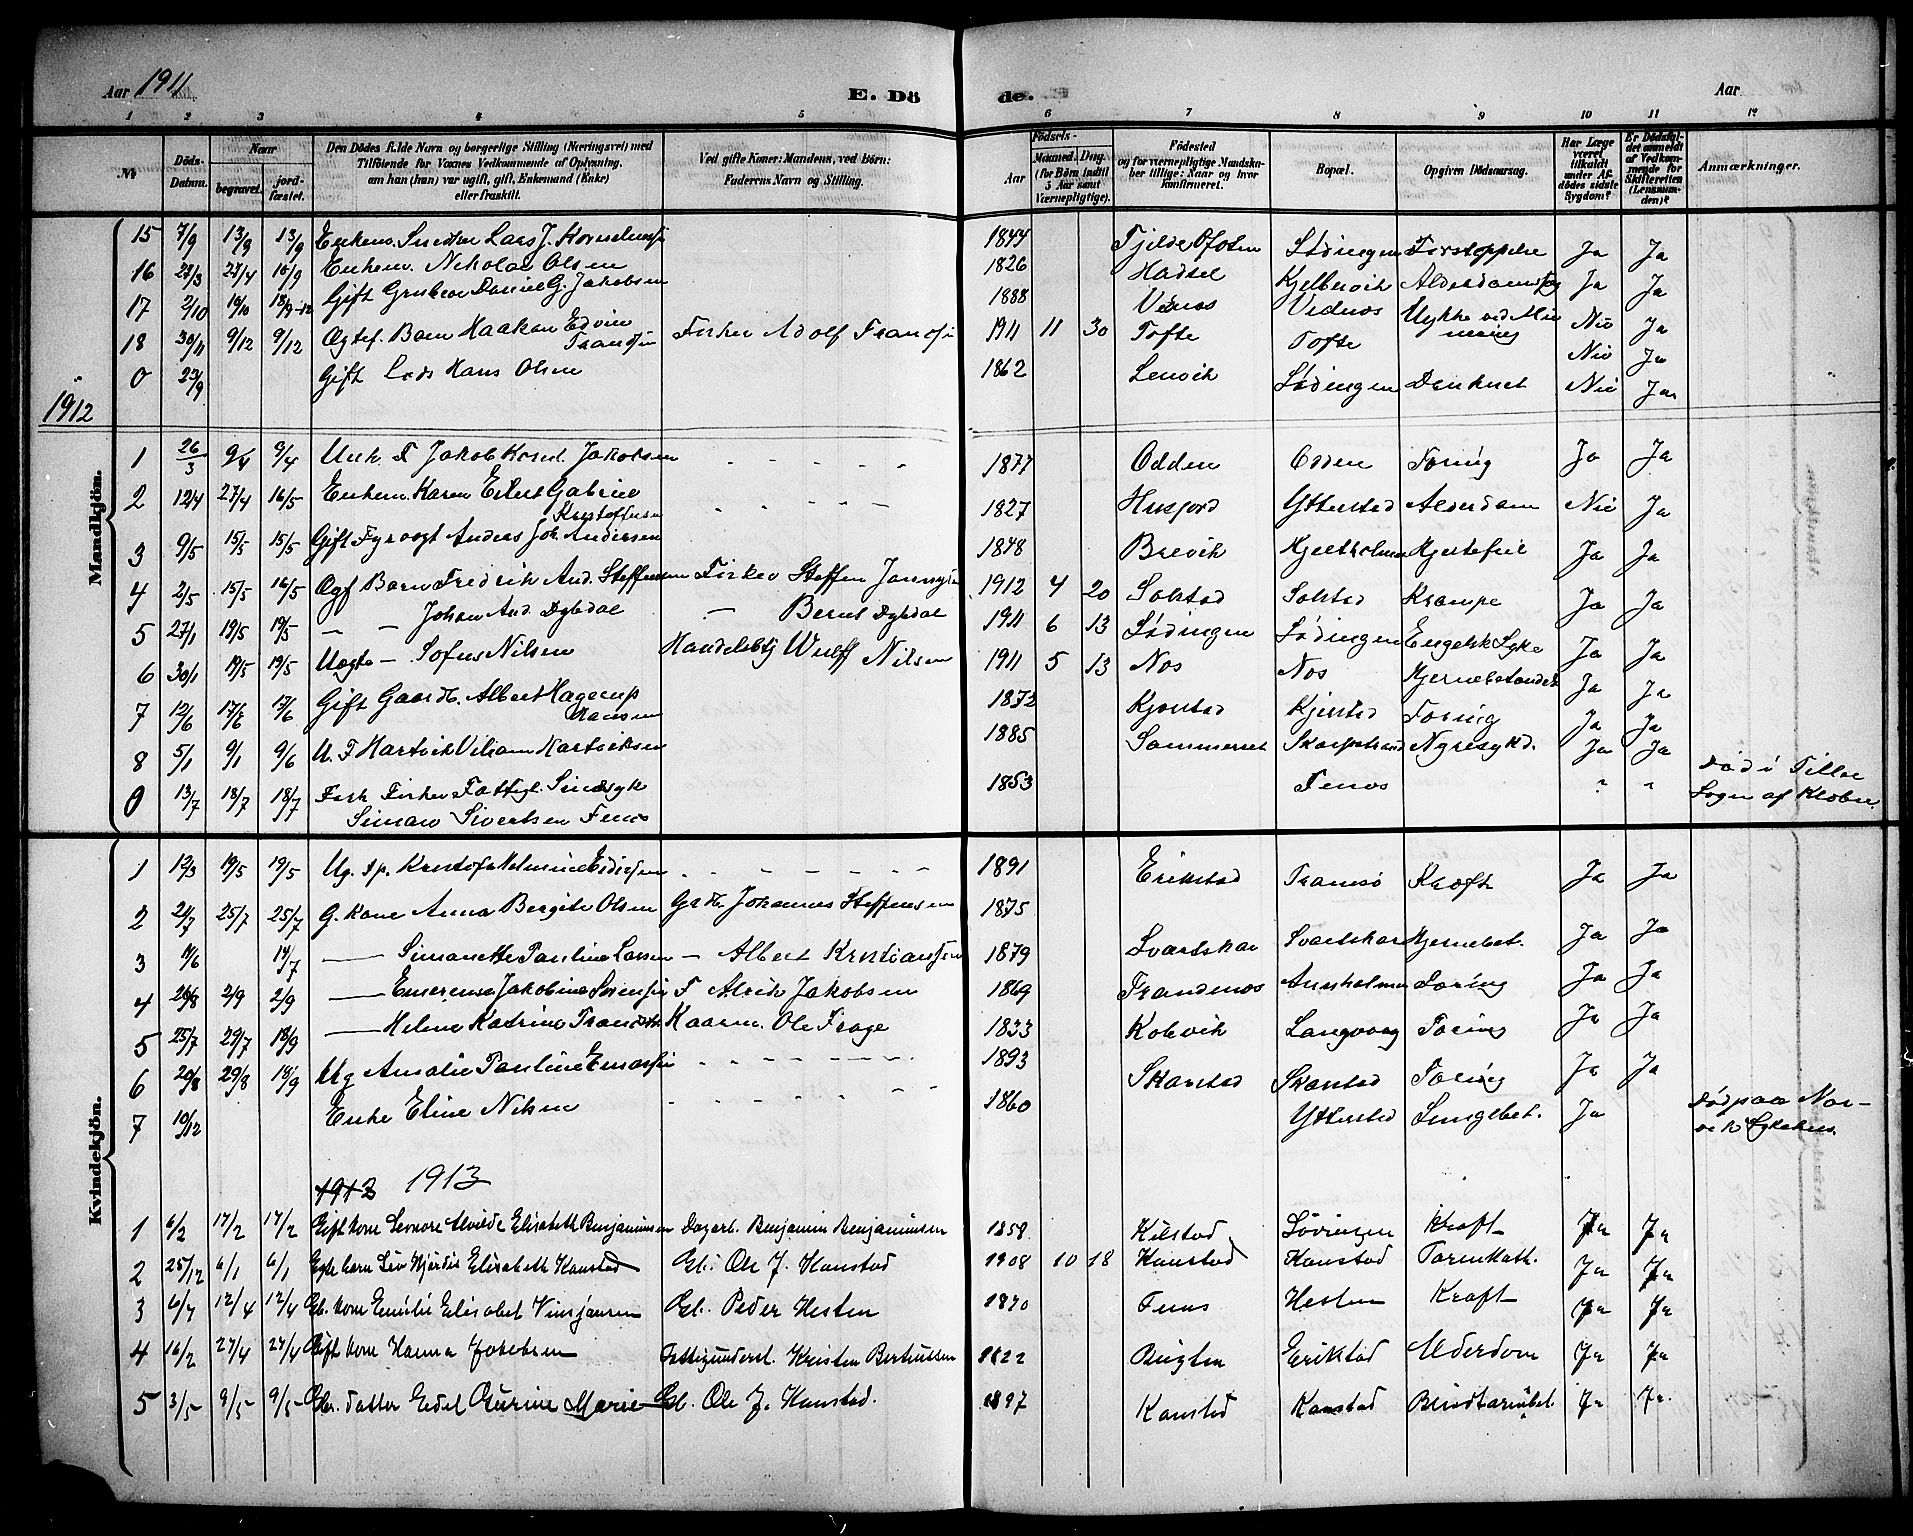 Aar 1911
E. Dö
de.
Aar
1 2 3 4 5 6 7 8 9 10 11 12
№
Döds-Datum.
Naar
begravet.
jord-fæstet.
Den Dödes fulde Navn og borgerlige Stilling (Næringsvei) med
Tilföiende for Voxnes Vedkommende af Oplysning,
om han (hun) var ugift, gift, Enkemand (Enke)
eller fraskilt.
Ved gifte Koner: Mandens, ved Börn:
Faderens Navn og Stilling.
Födsels-
Aar
Maaned. Dag.
(for Börn indtil 5 Aar samt Værnepligtige).
Födested
og for værnepligtige Mandska-
ber tillige: Naar og hvor
konfirmeret.
Bopæl.
Opgiven Dödsaarsag.
Har Læge været tilkaldt under Afdödes sidste Sygdom?
Er Dödsfaldet anmeldt af Vedkommende for Skifteretten (Lensmanden)?
Anmærkninger.
15 7/9 13/9 13/9 Enkem. Snedker Lars J. Kornelius 1844 Tjelde Ofoten Lødingen Forstoppelse Ja Ja
16 27/3 27/4 Enkem. Nikolai Olsen 1826 Hadsel Kjelbotvik Alderdomssvag Ja Ja
17 2/10 19/10 Gift Gruber Daniel G. Jakobsen 1888 Vidnes Ulykke ved Minering Nei Ja
18 30/11 9/12 9/12 Ægtef. Barn Haakon Edvin Fransen Fisker Adolf Fransen 1911 11 30 Tofte Tofte Nei Ja
0 23/9 Gift Lods Hans Olsen 1862 Lenvik Lødingen Druknet Nei Ja
1912
Mandkjön.
1 26/3 9/4 9/4 Unk. F Jakob Kornel. Jakobsen 1877 Odden Odden Tæring Ja Ja
2 12/4 27/4 16/5 Enkem. Karen Eilert Gabriel Kristoffersen 1827 Husjord Ytterstad Alderdom Nei Ja
3 9/5 15/5 15/5 Gift Fyrvogt Anders Joh. Andersen 1848 Brevik Hjertholmen Hjertefeil Ja Ja
4 2/5 15/5 16/5 Ægf Barn Fredrik And. Steffensen Fisker Steffen 1912 4 20 Solstad Solstad Krampe Ja Ja
5 27/1 19/5 19/5 — — Johan And. Dybdal — Bernt Dybdal 1911 6 13 Lødingen Lødingen Engelsk Syke Ja Ja
6 30/1 19/5 19/5 Uægte — Sofus Nilsen Handelsbtj Wulff Nilsen 1911 5 13 Nes Nes Hjernebetændels Ja Ja
7 12/6 17/6 17/6 Gift Gaardb. Albert Hagerup Hansen 1872 Kjerstad Kjerstad Tæring Ja Ja
8 5/1 9/1 9/6 U. F Hartvik Viliam Hartviksen 1885 Sommerset Skarpstrand Nyresykd. Ja Ja
0 13/7 18/7 18/7 Forh. Fisker Fattigl. Sindsyk Simon Sivertsen Fenes 1853 Fenes " " Død i Tiller Sogn af Klæbu.
Kvindekjön.
1 12/3 19/5 19/5 Ug. tp. Kristofa Nelmine Edisen 1891 Erikstad Tromsø Kræft Ja Ja
2 2/7 25/7 25/7 G. Kone Anna Bergite Olsen Gdbr Johannes Steffensen 1875 Svartskar Svartskar Hjernebet. Ja Ja
3 9/6 14/7 — Simonette Pauline Larsen — Albert Kristiansen 1879
4 26/8 2/9 2/9 — Emerense Jakobine Sørensen F Alrik Jakobsen 1869 Trandenes Annholmen Tæring Ja Ja
5 25/7 29/7 18/9 — Helene Katrine Kaarm. Ole Frage 1833 Kobvik Langvaag Tæring Ja Ja
6 20/8 29/8 18/9 Ug Amalie Pauline Enoksen 1893 Skanstad Skanstad Tæring Ja Ja
7 10/12 Enke Eline Nilsen 1860 Ytterstad Lungebet. Ja Død paa Narvik Sykehus.
1912 1913
1 6/2 17/2 17/2 Gift kone Leonore Alvilde Elisabeth Benjaminsen Dagarb. Benjamin Benjaminsen 1858 Kilstad Lødingen Kræft Ja Ja
2 25/12 6/1 6/1 Egte barn Liv Hjørdis Elisabeth Kanstad Gb. Ole J. Kanstad 1908 10 18 Kanstad Kanstad Tarmkath. Ja Ja
3 12/4 12/4 Gb. kone Emilie Elisabet Vinsjansen Gb. Peder Hesten 1870 Fenes Hesten Kræft Ja Ja
4 16/2 27/4 27/4 Gift kone Hanna Jakobsen Fattigunderst. Kristen Bertussen 1822 Bugten Erikstad Alderdom Ja Ja
5 3/5 9/5 9/5 Gbr. datter Eidel Gurine Marie Gb. Ole J. Kanstad. 1897 Kanstad Kanstad Blindtarmbet. Ja Ja.